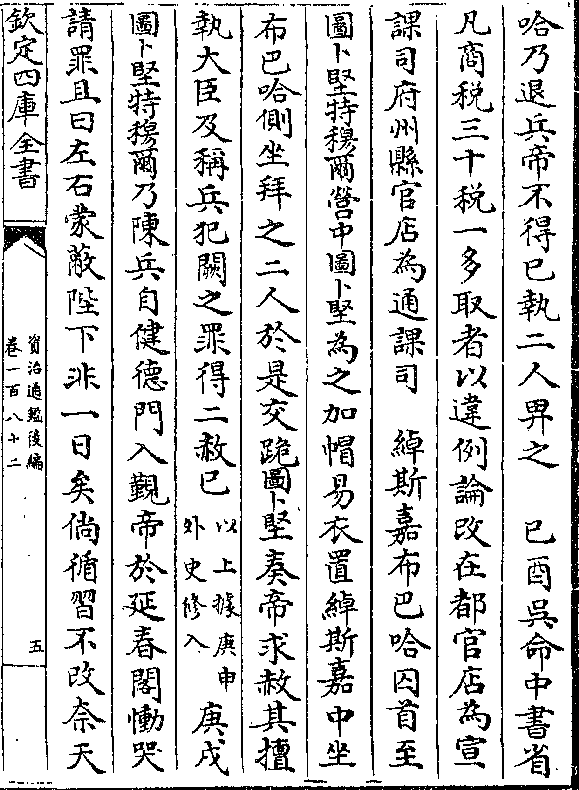 哈乃退兵帝不得已執二人畀之　己酉吳命中書省
凡商税三十税一多取者以違例論改在都官店為宣
課司府州縣官店為通課司　綽斯嘉布巴哈囚首至
圖卜堅特穆爾營中圖卜堅為之加帽易衣置綽斯嘉中坐
布巴哈側坐拜之二人於是交跪圖卜堅奏帝求赦其擅
執大臣及稱兵犯闕之罪得二赦已
以上據庚申
外史修入
庚戌
圖卜堅特穆爾乃陳兵自健德門入覲帝於延春閣慟哭
請罪且曰左右蒙蔽陛下非一日矣倘循習不改奈天
欽定四庫全書
資治通鑑後編
卷一百八十二
五